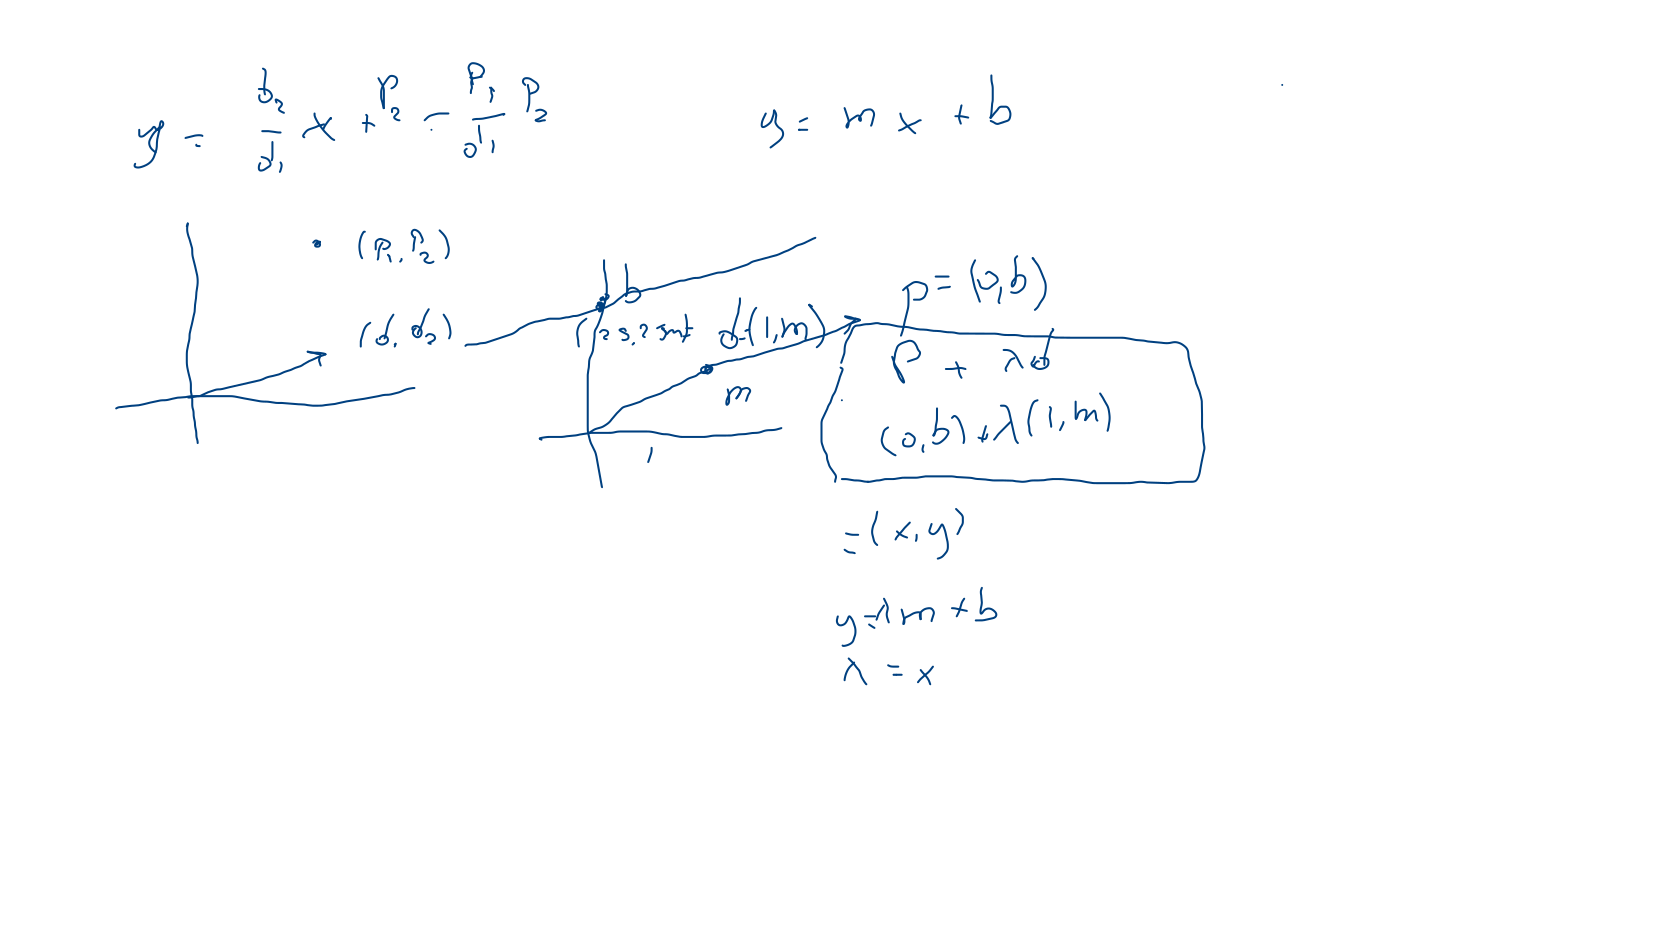 y = d₂/d₁ x + P₂ - P₁/d₁ P₂
y = m x + b
(P₁, P₂)
(d, d₂)
b
d=(1,m)
m
1
P = (0,b)
P + λd
(0,b) + λ(1,m)
=(x,y)
y=λm + b
λ = x